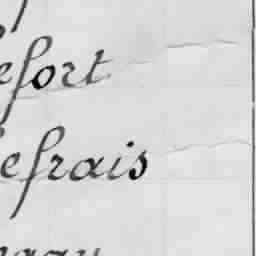 efort
efrais